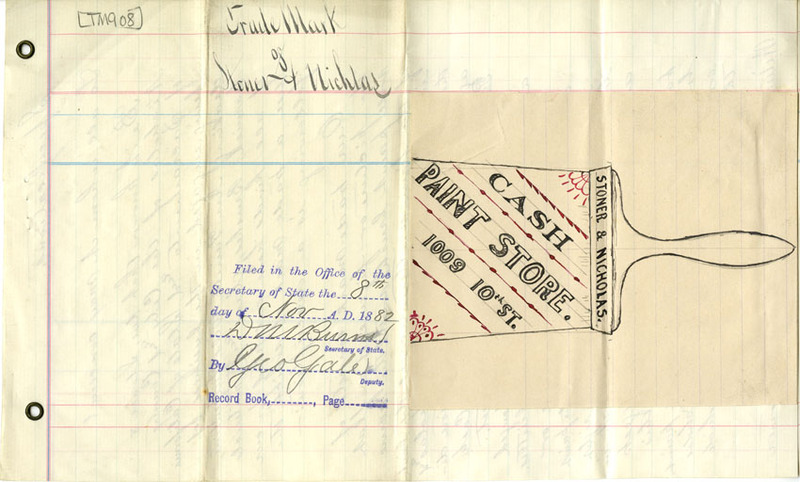 [TM908]
Trade Mark
of
Stoner & Nichlas
Filed in the Office of the
Secretary of State the 8th
day of Nov A. D. 1882
Secretary of State.
By Geo Gale
Deputy.
Record Book, , Page
CASH
PAINT STORE.
1009 10th ST.
STONER & NICHOLAS.